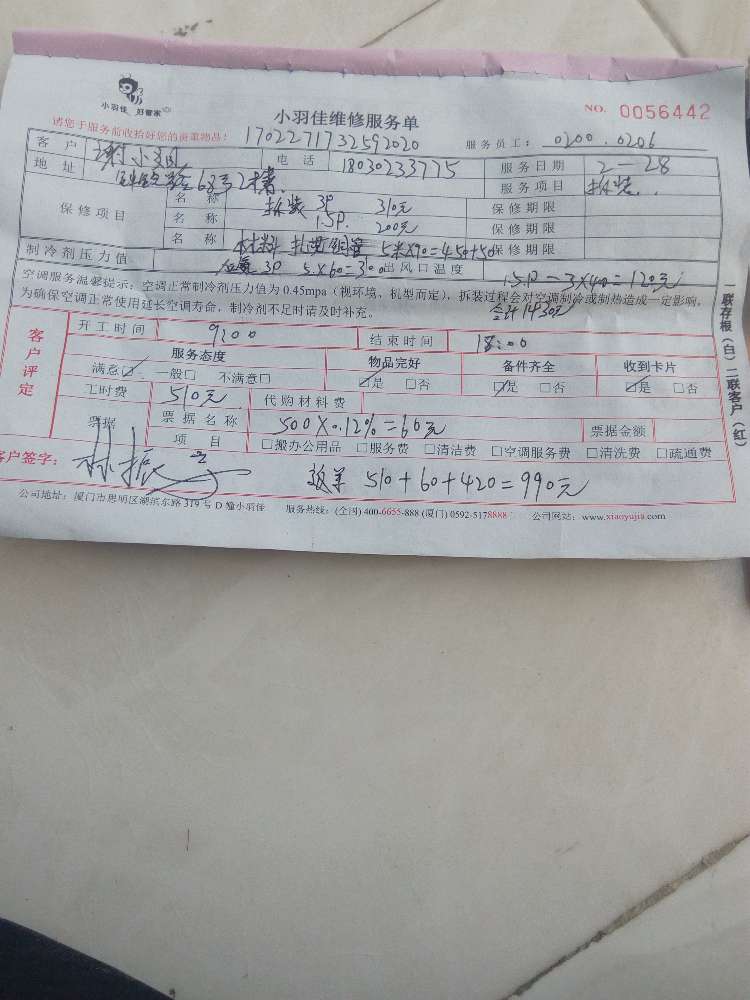 小羽佳 好管家
小羽佳维修服务单
NO. 0056442
请您于服务前收拾好您的贵重物品!
1702271732592020
服务员工: 0200.0206
客 户 谢小凤 电 话 18030233775 服务日期 2-28
地 址 68号2楼 服务项目 拆装
保修项目 名 称 拆装 3P 310元 保修期限
名 称 1.5P. 200元 保修期限
名 称 材料 铜管 5米X90=450+50 保修期限
制冷剂压力值 加氟 3P 5X60=300 出风口温度 1.5P-3X40=120元
空调服务温馨提示:空调正常制冷剂压力值为0.45mpa(视环境、机型而定),拆装过程会对空调制冷或制热造成一定影响,
为确保空调正常使用延长空调寿命,制冷剂不足时请及时补充。 合计1430元
客户评定
开工时间 9:00 结束时间 18:00
服务态度 物品完好 备件齐全 收到卡片
满意☑ 一般□ 不满意□ ☑是 □否 ☑是 □否 ☑是 □否
工时费 510元 代购材料费
票据 票据名称 500X0.12%=60元 票据金额
项 目 □搬办公用品 □服务费 □清洁费 □空调服务费 □清洗费 □疏通费
客户签字: 林振
510+60+420=990元
公司地址:厦门市思明区湖滨东路319号D幢小羽佳 服务热线:(全国)400-6655-888 (厦门)0592-5178888 公司网站:www.xiaoyujia.com
一联存根(白)二联客户(红)